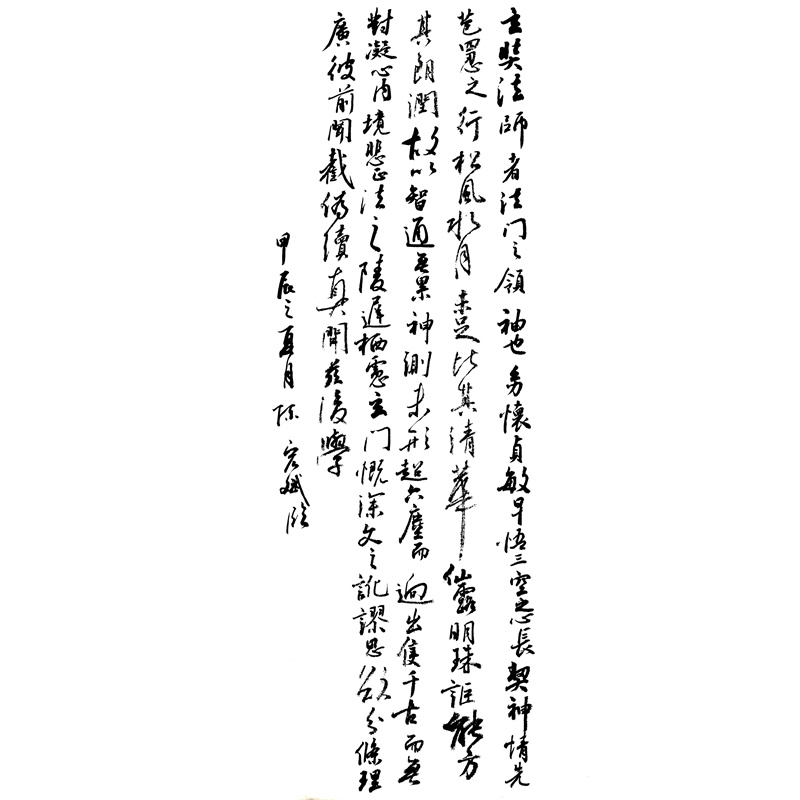 玄奘法師者法門之領袖也幼懷貞敏早悟三空之心長契神情先
苞四忍之行松風水月未足比其清華仙露明珠詎能方
其朗潤故以智通無累神測未形超六塵而迥出隻千古而無
對凝心內境悲正法之陵遲栖慮玄門慨深文之訛謬思欲分條理
廣彼前聞截偽續真開茲後學
甲辰之夏月陈